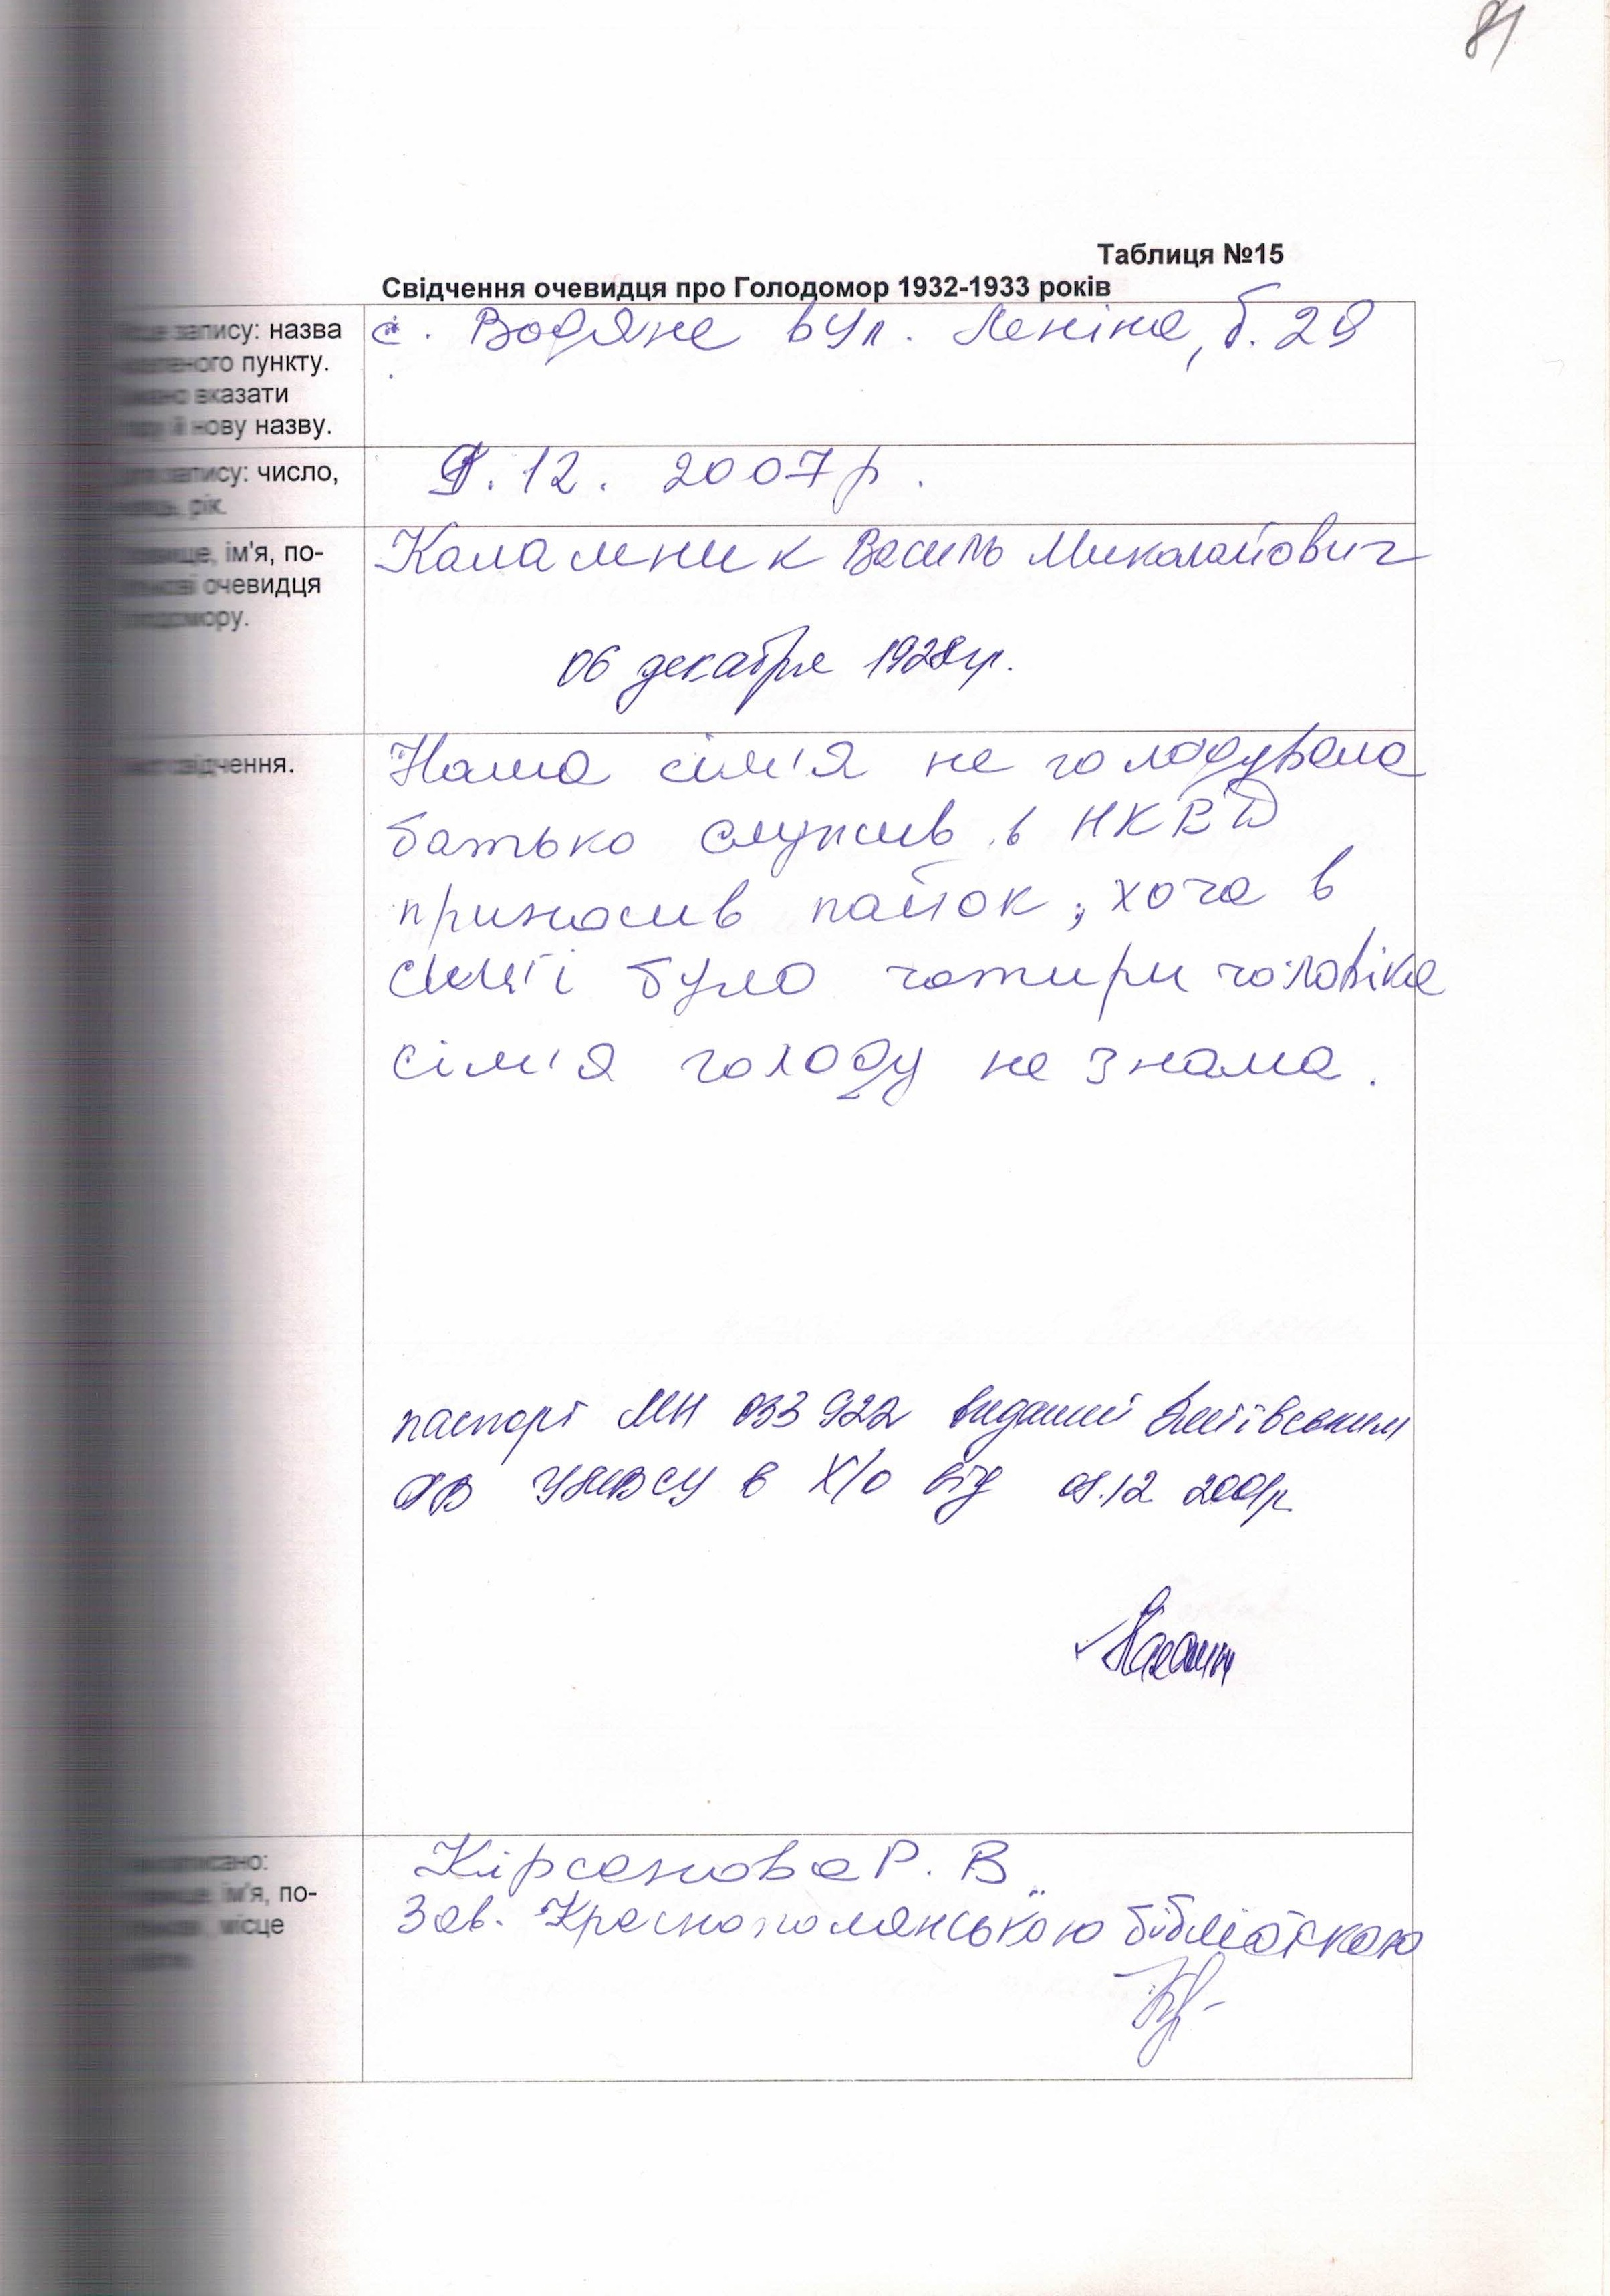 81
Таблиця №15
Свідчення очевидця про Голодомор 1932-1933 років
запису: назва
пункту.
вказати
й нову назву.
с. Водяне вул. Леніна, б. 29
запису: число,
рік.
9.12. 2007р.
ім'я, по-
очевидця
Каламник Василь Миколайович
06 декабря 1928 гр.
свідчення.
Наша сім'я не голодувала
батько служив в НКВД
приносив пайок, хоча в
сім'ї було чотири чоловіка
сім'я голоду не знала.
паспорт МН 033922 виданий Зміївським
РВ УМВСУ в Х/о від 01.12 2001р
ім'я, по-
місце
Кірсанова Р. В.
Зав. Краснополянською бібліотекою